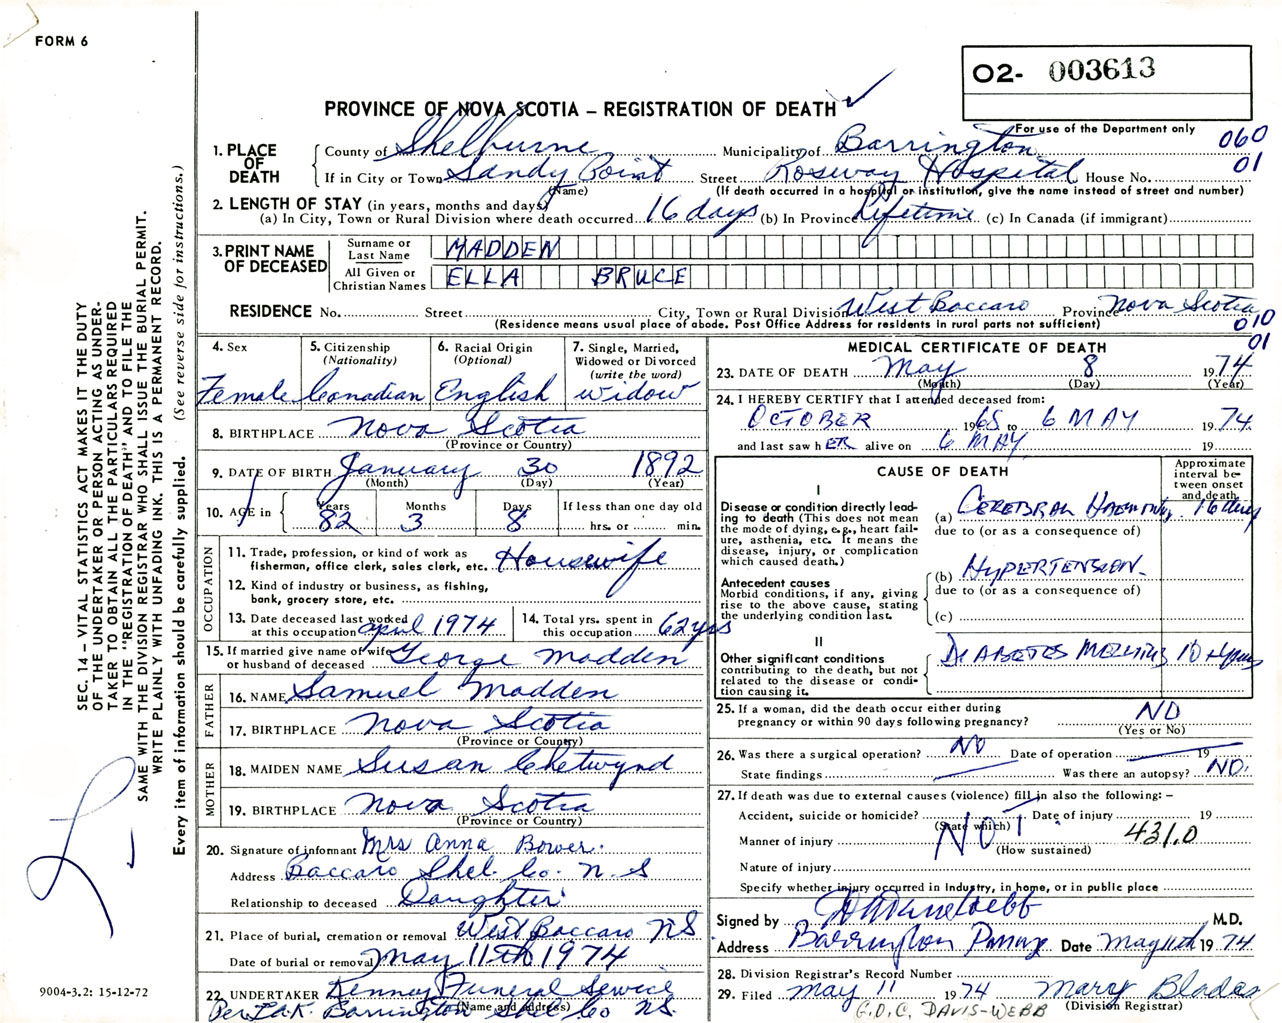 FORM 6
O2- 003613
PROVINCE OF NOVA SCOTIA – REGISTRATION OF DEATH
For use of the Department only
060
01
1. PLACE OF DEATH
County of Shelburne Municipality of Barrington
If in City or Town Sandy Point Street Roseway Hospital House No.
(Name) (If death occurred in a hospital or institution, give the name instead of street and number)
2. LENGTH OF STAY (in years, months and days)
(a) In City, Town or Rural Division where death occurred 16 days (b) In Province Lifetime (c) In Canada (if immigrant)
3. PRINT NAME OF DECEASED
Surname or Last Name MADDEN
All Given or Christian Names ELLA BRUCE
RESIDENCE No. Street City, Town or Rural Division West Baccaro Province Nova Scotia
(Residence means usual place of abode. Post Office Address for residents in rural parts not sufficient)
010
01
4. Sex
Female
5. Citizenship (Nationality)
Canadian
6. Racial Origin (Optional)
English
7. Single, Married, Widowed or Divorced (write the word)
widow
8. BIRTHPLACE Nova Scotia
(Province or Country)
9. DATE OF BIRTH January 30 1892
(Month) (Day) (Year)
10. AGE in Years 82 Months 3 Days 8 If less than one day old
hrs. or min.
OCCUPATION
11. Trade, profession, or kind of work as fisherman, office clerk, sales clerk, etc. Housewife
12. Kind of industry or business, as fishing, bank, grocery store, etc.
13. Date deceased last worked at this occupation april 1974
14. Total yrs. spent in this occupation 62 yrs
15. If married give name of wife or husband of deceased George Madden
FATHER
16. NAME Samuel Madden
17. BIRTHPLACE Nova Scotia
(Province or Country)
MOTHER
18. MAIDEN NAME Susan Chetwynd
19. BIRTHPLACE Nova Scotia
(Province or Country)
20. Signature of informant Mrs Anna Bower.
Address Baccaro Shel. Co. N.S
Relationship to deceased Daughter
21. Place of burial, cremation or removal West Baccaro NS
Date of burial or removal May 11th 1974
22. UNDERTAKER Kenney Funeral Service
(Name and address)
Barrington Shel Co NS.
MEDICAL CERTIFICATE OF DEATH
23. DATE OF DEATH May 8 1974
(Month) (Day) (Year)
24. I HEREBY CERTIFY that I attended deceased from:
OCTOBER 1965 to 6 MAY 1974
and last saw hER alive on 6 MAY 19
CAUSE OF DEATH
Approximate interval between onset and death
I
Disease or condition directly leading to death (This does not mean the mode of dying, e.g., heart failure, asthenia, etc. It means the disease, injury, or complication which caused death.)
(a) CEREBRAL 16 days
due to (or as a consequence of)
Antecedent causes
Morbid conditions, if any, giving rise to the above cause, stating the underlying condition last.
(b) HYPERTENSION
due to (or as a consequence of)
(c)
II
Other significant conditions contributing to the death, but not related to the disease or condition causing it.
DIABETES MELLITUS 10
25. If a woman, did the death occur either during pregnancy or within 90 days following pregnancy? NO
(Yes or No)
26. Was there a surgical operation? NO Date of operation 19
State findings Was there an autopsy? NO.
27. If death was due to external causes (violence) fill in also the following: –
Accident, suicide or homicide? Date of injury 19
(State which)
NOT
Manner of injury 431.0
(How sustained)
Nature of injury
Specify whether injury occurred in industry, in home, or in public place
Signed by M.D.
Address Barrington Passage Date May 11th 1974
28. Division Registrar's Record Number
29. Filed May 11 1974 Mary Blades
(Division Registrar)
G.D.C. DAVIS-WEBB
SEC. 14 – VITAL STATISTICS ACT MAKES IT THE DUTY
OF THE UNDERTAKER OR PERSON ACTING AS UNDER-
TAKER TO OBTAIN ALL THE PARTICULARS REQUIRED
IN THE "REGISTRATION OF DEATH" AND TO FILE THE
SAME WITH THE DIVISION REGISTRAR WHO SHALL ISSUE THE BURIAL PERMIT.
WRITE PLAINLY WITH UNFADING INK. THIS IS A PERMANENT RECORD.
Every item of information should be carefully supplied. (See reverse side for instructions.)
9004-3.2: 15-12-72